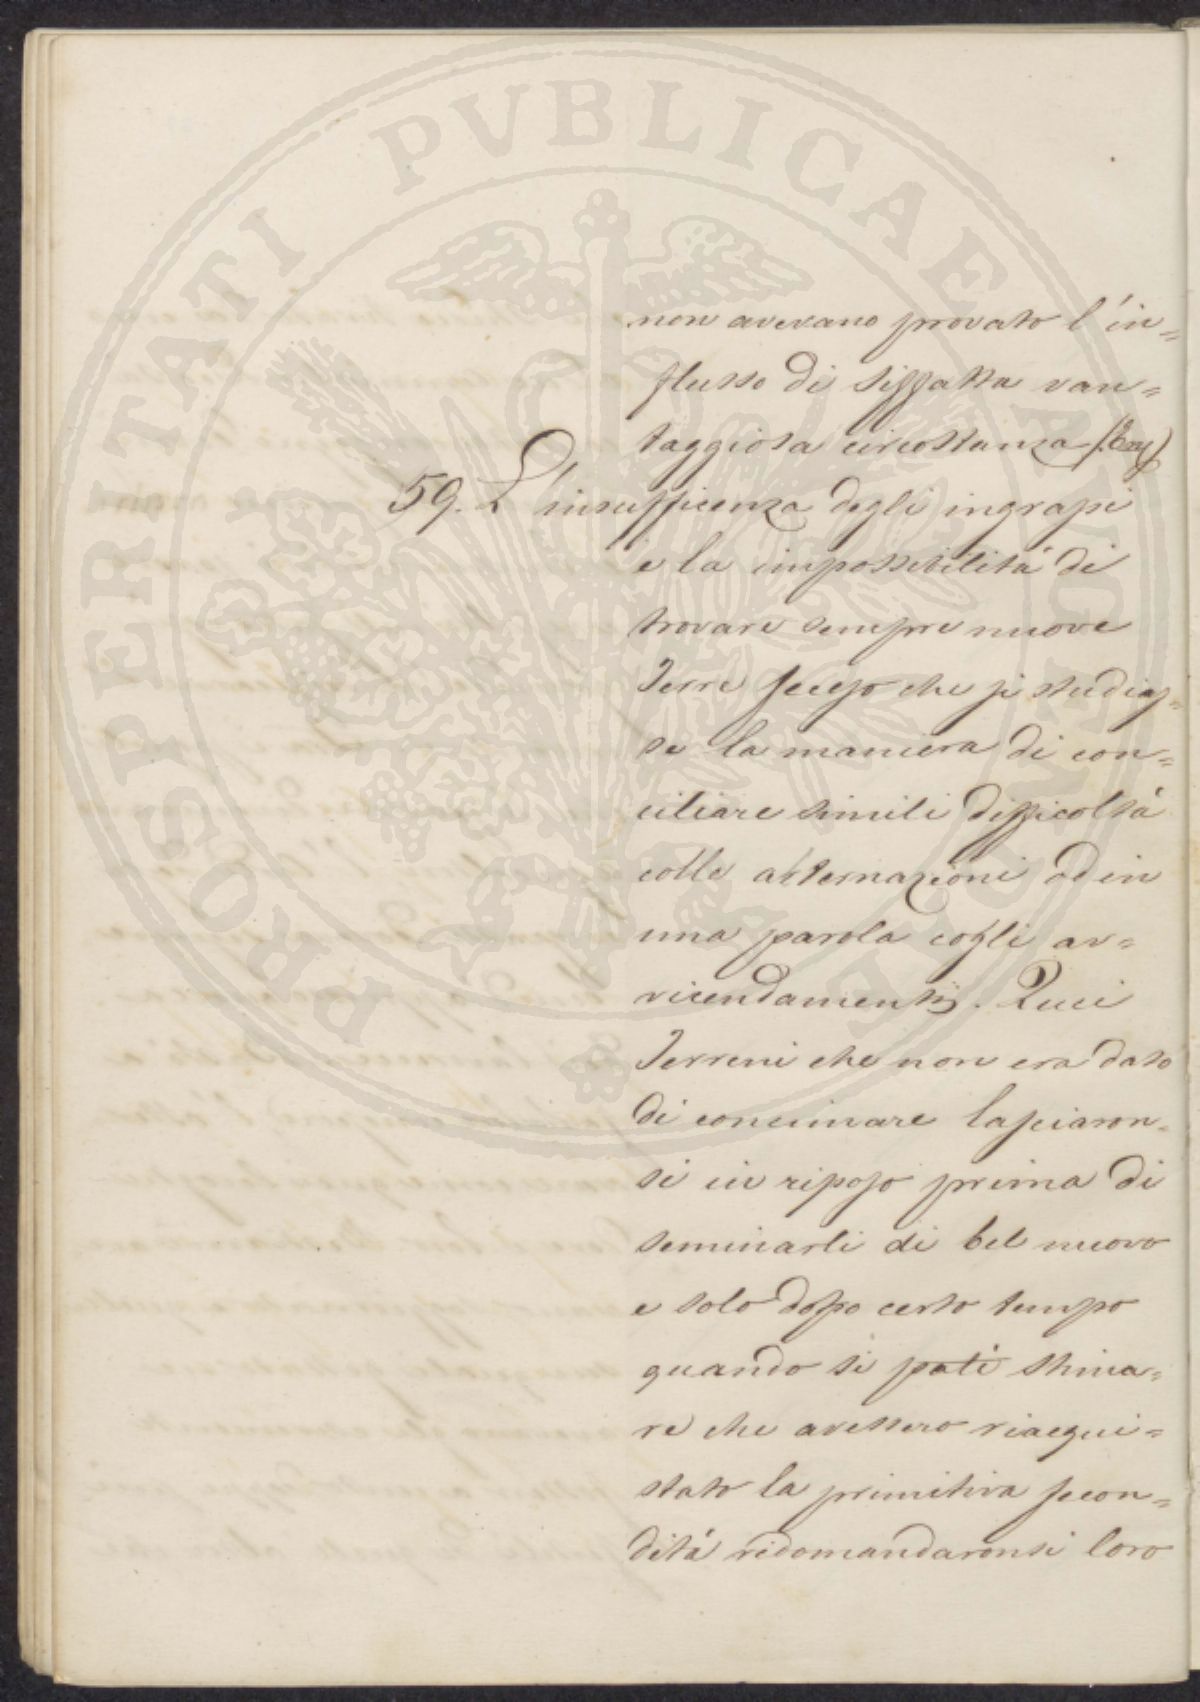 PROSPERITATI PVBLICAE AVGENDAE
non avevano provato l'in=
flusso di siffatta van=
taggiosa circostanza
59. L'insufficenza degli ingrassi
e la impossibilità di
trovare sempre nuove
Terre fecesso che si studias=
se la maniera di con=
ciliare simili difficoltà
colle alternazioni od in
una parola cogli av=
vicendamenti. Quei
Terreni che non era dato
di concimare lasciaron=
si in riposo prima di
seminarli di bel nuovo
e solo dopo certo tempo
quando si potè stima=
re che avessero riacqui=
stato la primitiva fecon=
dità ridomandaronsi loro